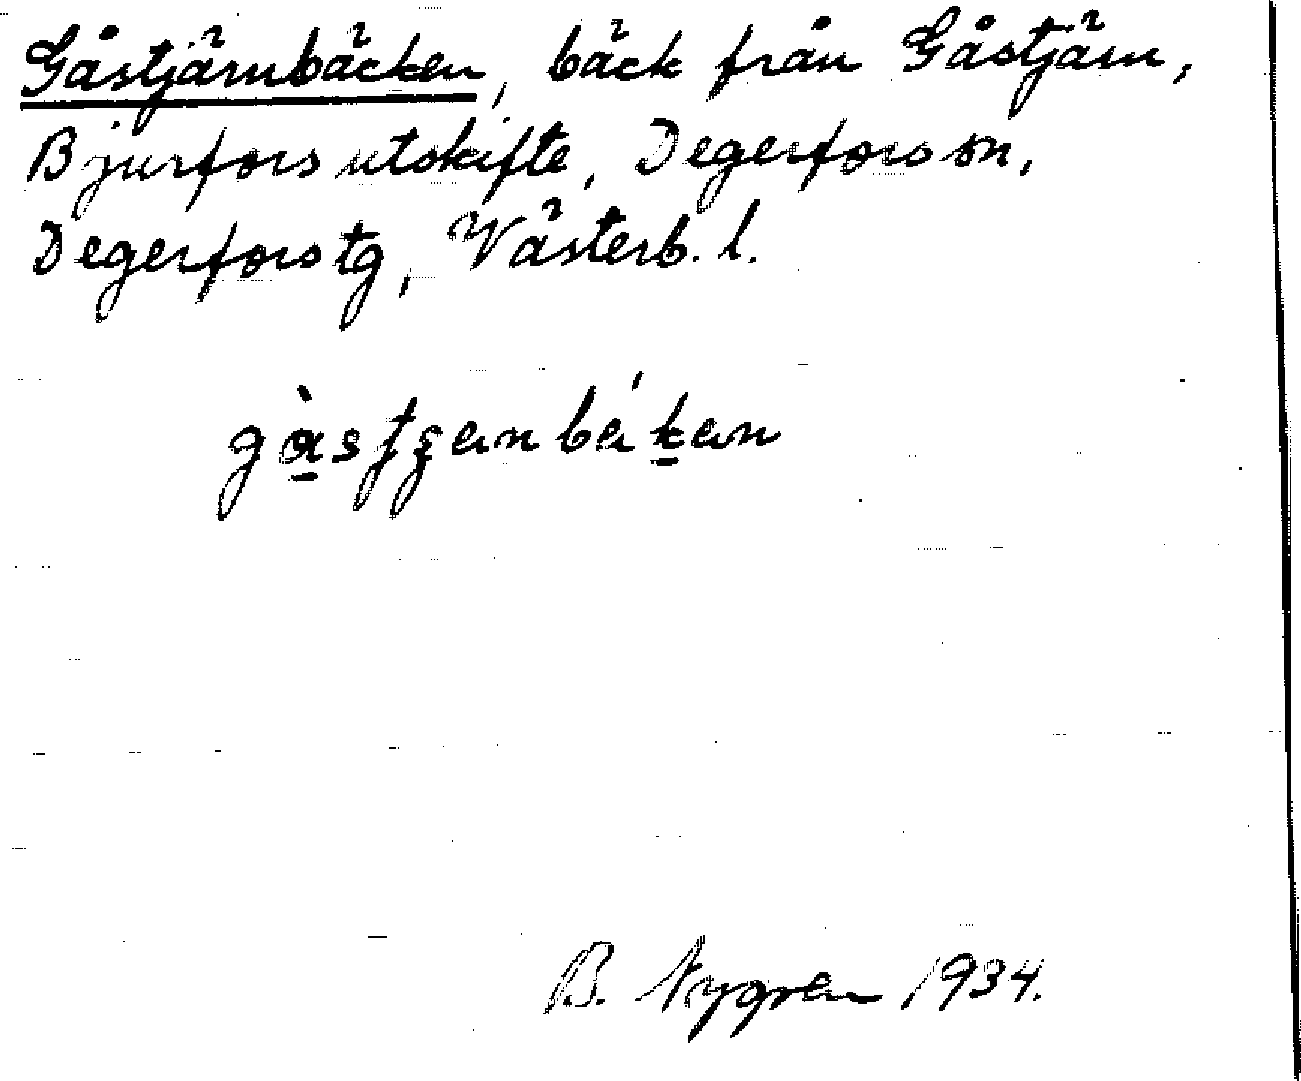 Gåstjärnbäcken, bäck från Gåstjärn,
Bjurfors utskifte, Degerfors sn,
Degerfors tg, Västerb. l.
B. Nygren 1934.